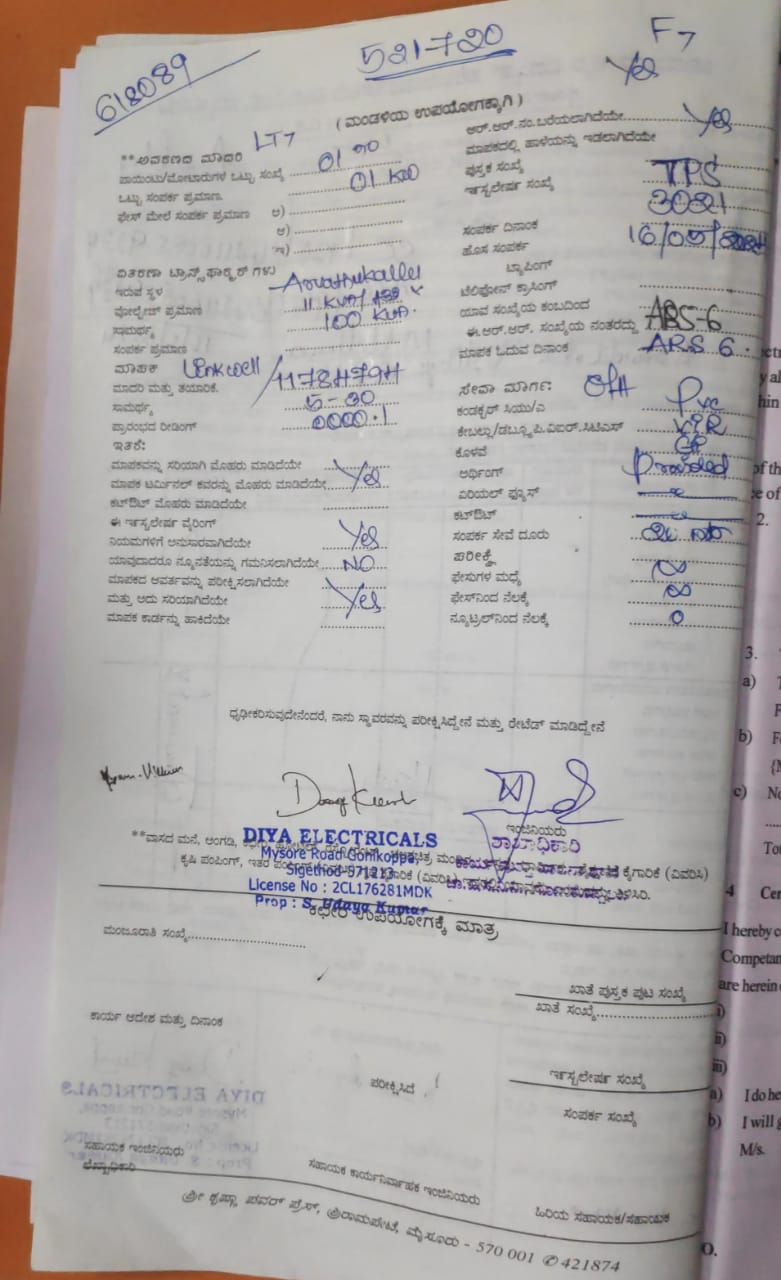 618089
521-720
F7
Yes
( ಮಂಡಳಿಯ ಉಪಯೋಗಕ್ಕಾಗಿ )
**ಅವರಣದ ಮಾದರಿ LT7
ಪಾಯಿಂಟು/ಮೋಟಾರುಗಳ ಒಟ್ಟು ಸಂಖ್ಯೆ 01
ಒಟ್ಟು ಸಂಪರ್ಕ ಪ್ರಮಾಣ 01 KW
ಫೇಸ್ ಮೇಲೆ ಸಂಪರ್ಕ ಪ್ರಮಾಣ ಅ)
ಆ)
ಇ)
ವಿತರಣಾ ಟ್ರಾನ್ಸ್‌ಫಾರ್ಮರ್ ಗಳು
ಇರುವ ಸ್ಥಳ Arvathukallu
ವೋಲ್ಟೇಜ್ ಪ್ರಮಾಣ
ಸಾಮರ್ಥ್ಯ 100 KVA.
ಸಂಪರ್ಕ ಪ್ರಮಾಣ
ಮಾಪಕ Linkwell
ಮಾದರಿ ಮತ್ತು ತಯಾರಿಕೆ.
ಸಾಮರ್ಥ್ಯ 5-30
ಪ್ರಾರಂಭದ ರೀಡಿಂಗ್ 0000.1
ಇತರೆ:
ಮಾಪಕವನ್ನು ಸರಿಯಾಗಿ ಮೊಹರು ಮಾಡಿದೆಯೇ
ಮಾಪಕ ಟರ್ಮಿನಲ್ ಕವರನ್ನು ಮೊಹರು ಮಾಡಿದೆಯೇ Yes
ಕಟ್‌ಔಟ್ ಮೊಹರು ಮಾಡಿದೆಯೇ
ಈ ಇನ್ಸ್ಟಲೇಷನ್ ವೈರಿಂಗ್
ನಿಯಮಗಳಿಗೆ ಅನುಸಾರವಾಗಿದೆಯೇ Yes
ಯಾವುದಾದರೂ ನ್ಯೂನತೆಯನ್ನು ಗಮನಿಸಲಾಗಿದೆಯೇ NO
ಮಾಪಕದ ಆವರ್ತವನ್ನು ಪರೀಕ್ಷಿಸಲಾಗಿದೆಯೇ
ಮತ್ತು ಅದು ಸರಿಯಾಗಿದೆಯೇ Yes
ಮಾಪಕ ಕಾರ್ಡನ್ನು ಹಾಕಿದೆಯೇ
ಆರ್.ಆರ್.ನಂ.ಬರೆಯಲಾಗಿದೆಯೇ
ಮಾಪಕದಲ್ಲಿ ಹಾಳೆಯನ್ನು ಇಡಲಾಗಿದೆಯೇ Yes
ಪುಸ್ತಕ ಸಂಖ್ಯೆ TPS
ಇನ್ಸ್ಟಲೇಷನ್ ಸಂಖ್ಯೆ 3081
ಸಂಪರ್ಕ ದಿನಾಂಕ
ಹೊಸ ಸಂಪರ್ಕ
ಟ್ಯಾಪಿಂಗ್
ಟೆಲಿಫೋನ್ ಕ್ರಾಸಿಂಗ್
ಯಾವ ಸಂಖ್ಯೆಯ ಕಂಬದಿಂದ
ಈ.ಆರ್.ಆರ್. ಸಂಖ್ಯೆಯ ನಂತರದ್ದು ARS-6
ಮಾಪಕ ಓದುವ ದಿನಾಂಕ ARS 6
ಸೇವಾ ಮಾರ್ಗ: OH
ಕಂಡಕ್ಟರ್ ಸಿಯು/ಎ Pvc
ಕೇಬಲ್ಲು/ಡಬ್ಲ್ಯೂ.ಪಿ.ವಿಐರ್.ಸಿಟಿಎಸ್ VIR
ಕೊಳವೆ GP
ಅರ್ಥಿಂಗ್ Provided
ಏರಿಯಲ್ ಫ್ಯೂಸ್
ಕಟ್‌ಔಟ್
ಸಂಪರ್ಕ ಸೇವೆ ದೂರು
ಪರೀಕ್ಷೆ
ಫೇಸುಗಳ ಮಧ್ಯೆ ∞
ಫೇಸ್‌ನಿಂದ ನೆಲಕ್ಕೆ ∞
ನ್ಯೂಟ್ರಲ್‌ನಿಂದ ನೆಲಕ್ಕೆ 0
ಧೃಢೀಕರಿಸುವುದೇನೆಂದರೆ, ನಾನು ಸ್ಥಾವರವನ್ನು ಪರೀಕ್ಷಿಸಿದ್ದೇನೆ ಮತ್ತು ರೇಟೆಡ್ ಮಾಡಿದ್ದೇನೆ
ಇಂಜಿನಿಯರು
ಶಾಖಾಧಿಕಾರಿ
DIYA ELECTRICALS
Mysore Road Gonikoppa,
Sigethod-571213
License No : 2CL176281MDK
Prop : S. Udaya Kumar
**ವಾಸದ ಮನೆ, ಅಂಗಡಿ,
ಕೈಗಾರಿಕೆ (ವಿವರಿಸಿ)
ಕೃಷಿ ಪಂಪಿಂಗ್, ಇತರ
ಕಛೇರಿ ಉಪಯೋಗಕ್ಕೆ ಮಾತ್ರ
ಮಂಜೂರಾತಿ ಸಂಖ್ಯೆ
ಖಾತೆ ಪುಸ್ತಕ ಪುಟ ಸಂಖ್ಯೆ
ಖಾತೆ ಸಂಖ್ಯೆ
ಕಾರ್ಯ ಆದೇಶ ಮತ್ತು ದಿನಾಂಕ
ಪರೀಕ್ಷಿಸಿದೆ
ಇನ್ಸ್ಟಲೇಷನ್ ಸಂಖ್ಯೆ
ಸಂಪರ್ಕ ಸಂಖ್ಯೆ
ಸಹಾಯಕ ಇಂಜಿನಿಯರು
ಲೆಖ್ಖಾಧಿಕಾರಿ
ಸಹಾಯಕ ಕಾರ್ಯನಿರ್ವಾಹಕ ಇಂಜಿನಿಯರು
ಹಿರಿಯ ಸಹಾಯಕ/ಸಹಾಯಕ
ಶ್ರೀ ಕೃಷ್ಣಾ ಪವರ್ ಪ್ರೆಸ್, ಶ್ರೀರಾಮಪೇಟೆ, ಮೈಸೂರು - 570 001 ✆ 421874
2.
3.
a)
b)
c)
4
I hereby
are herein
i)
ii)
iii)
a) I do he
b) I will
M/s.